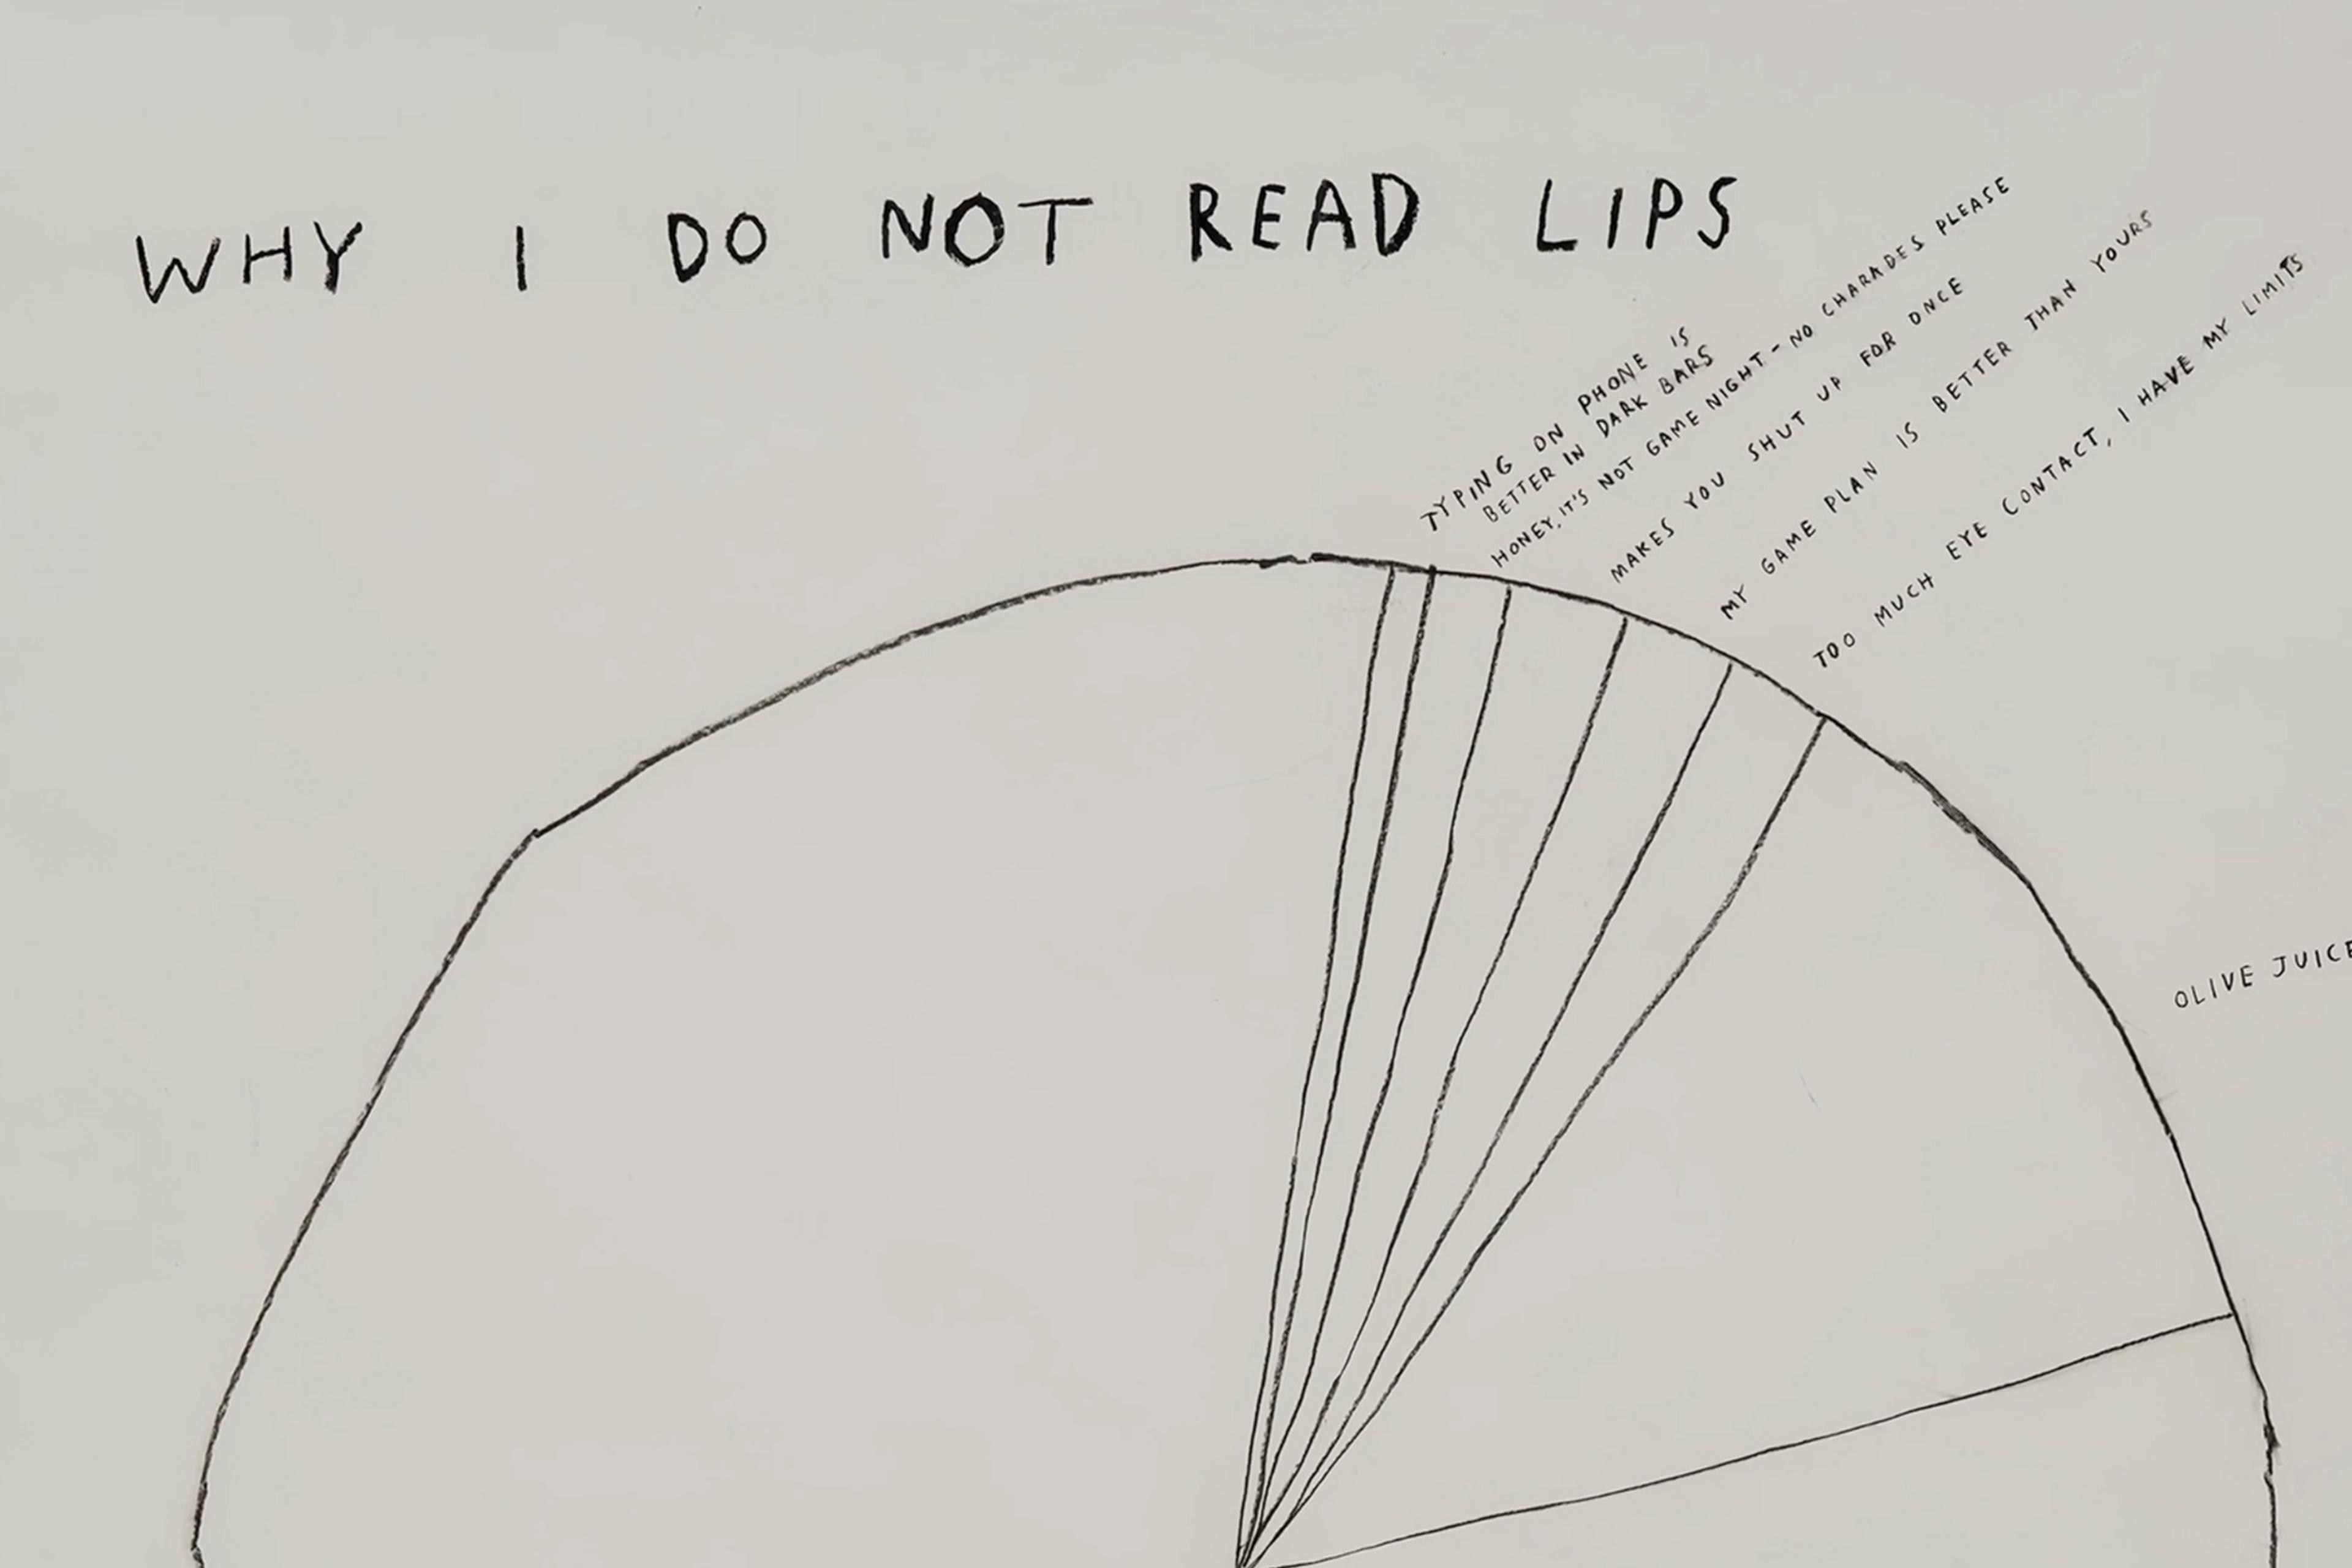 WHY I DO NOT READ LIPS
TYPING ON PHONE IS
BETTER IN DARK BARS
HONEY, IT'S NOT GAME NIGHT - NO CHARADES PLEASE
MAKES YOU SHUT UP FOR ONCE
MY GAME PLAN IS BETTER THAN YOURS
TOO MUCH EYE CONTACT, I HAVE MY LIMITS
OLIVE JUICE